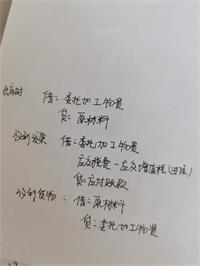 发商时 借：委托加工物资
贷：原材料
收到发票 借：委托加工物资
应交税费－应交增值税（进项）
贷：应付账款
收到货物：借：原材料
贷：委托加工物资